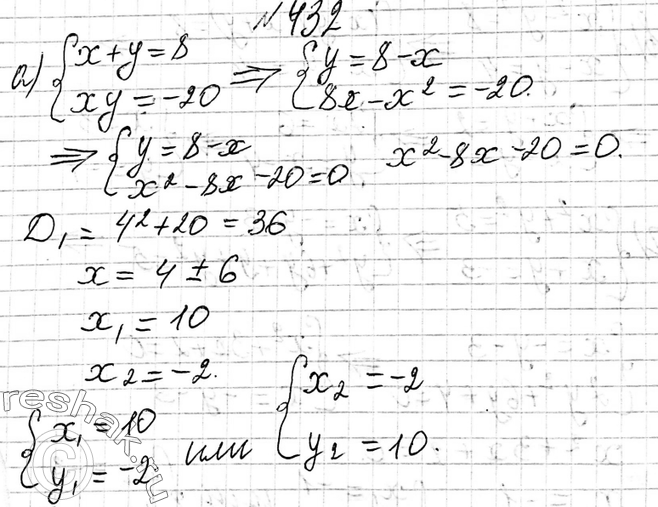 №432
а) {x+y=8 xy=-20 ⇒ {y=8-x 8x-x²=-20.
⇒ {y=8-x x²-8x-20=0. x²-8x-20=0.
D₁=4²+20=36
x=4±6
x₁=10
x₂=-2.
{x₁=10 y₁=-2 или {x₂=-2 y₂=10.
reshak.ru